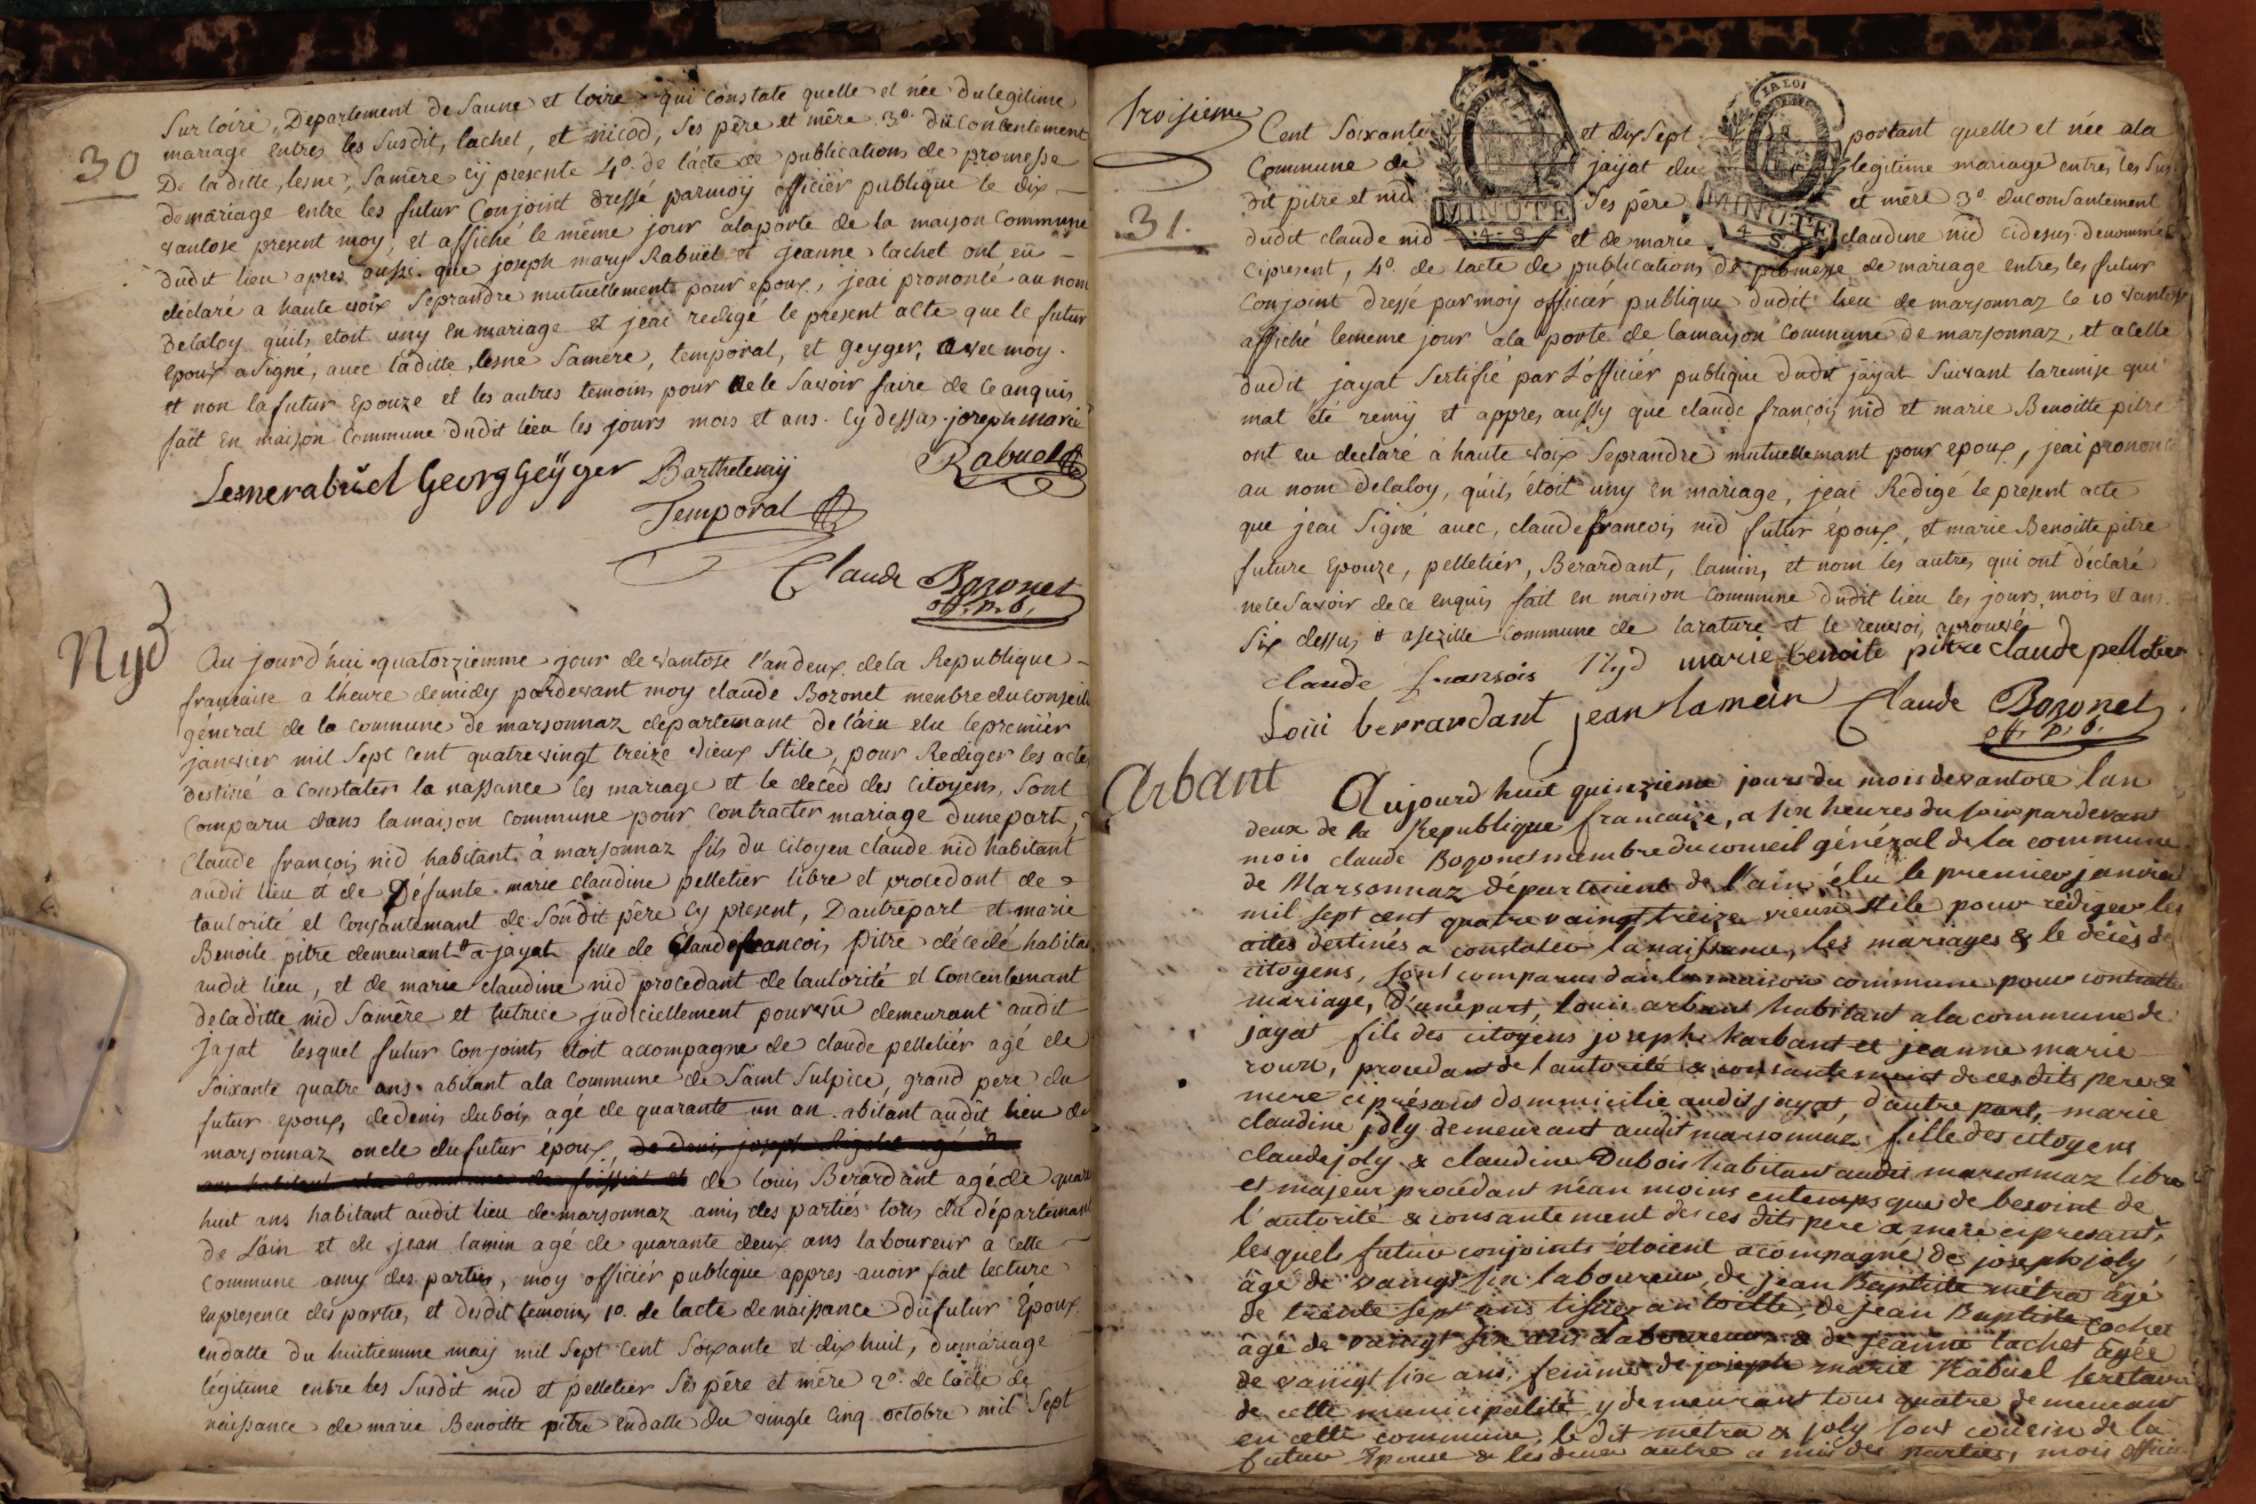 30
Sur loire, Departement de Saune et loire qui constate quelle et née du legitime
mariage entres les Susdit, lachet, et nicod, Ses père et mêre 3o. du concentement
De la ditte, lesne, Samère cÿ presente 4o. de lácte de publications de promesse
de mariage entre les futur Conjoint dressé par moÿ officiér publique le dix
vantose present moÿ, et affiché le même jour alaporte de la maison Commune
dudit lieu apres aussi que joseph mary Rabuël et jeanne lachet ont eü
déclaré a haute voix Seprandre mutuellement pour epoux, jeai prononcé au nom
delaloy quils etoit uny en mariage et jeai redigé le present acte que le futur
epoux a Signé, avec laditte lesne Samere, temporal, et geyger, avec moy
et non la futur Epouze et les autres temoins pour ne le Savoir faire de ce anquis
fait En maison Commune dudit lieu les jours mois et ans cy dessus joseph marie
Rabuel
Lesnerabuel Georg Geÿger Barthelemÿ
Temporal
Claude Bozonet
off. p. b.
Nyd
Au jourd'hui quatorziemme jour de vantose l'an deux de la Republique
francaise a lheure demidy pardevant moy claude Bozonet menbre du conseil
géneral de la commune de marsonnaz departemant de láin elu le premiér
janvier mil Sept Cent quatre vingt treize vieux Stile, pour Rediger les actes
destiné a Constater la nassance les mariage et le deced des Citoyens, Sont
Comparu dans lamaison Commune pour Contracter mariage dune part,
Claude françois nid habitant à marsonnaz fils du Citoyen claude nid habitant
audit lieu et de Défunte marie claudine pelletier libre et procedant de
lautorité et Consantemant de Sondit pêre cy present, Dautrepart et marie
Benoite pitre demeurant a jayat fille de Claude francois Pitre décedé habitant
audit lieu, et de marie claudine nid procedant de lautorité et Concentemant
de laditte nid Samêre et tutrice judiciellement pourvû demeurant audit
Jajat lesquel futur Conjoints étoit accompagne de claude pelletiér agé de
Soixante quatre ans abitant ala Commune de Saint Sulpice, grand pere du
futur epoux, de denis dubois agé de quarante un an abitant audit lieu de
marsonnaz oncle du futur époux,
de louis Berardant agé de quar
huit ans habitant audit lieu de marsonnaz amis des partiés tous du départemant
de L'ain et de jean lamin agé de quarante deux ans laboureur a Cette
Commune amy des parties, moy officiér publique appres avoir fait lecture
enpresence des partie, et desdit temoins 1o. de lacte de naissance du futur Epoux
endatte du huitiemme may mil Sept Cent Soixante et dix huit, dumáriage
légitime entre les Susdit nid et pelletier Sés pêre et mère 2o. de lácte de
naissance de marie Benoitte pitre endatte du vingte Cinq octobre mil Sept
troisieme
31.
Cent Soixante et dix Sept portant quelle et née a la
Commune de jaÿat du legitime mariage entres les Sus
dit pitre et nid Ses pére et mêre 3o. du consantement
dudit claude nid et de marie claudine nid cidesus denommé
cipresent, 4o. de lacte de publications de promesse de mariage entres les futur
Conjoint dressé par moy officiér publique dudit lieu de marsonnaz le 10 vantose
affiché lememe jour ala porte de lamaison Commune de marsonnaz, et acelle
dudit jayat Sertifié par l'officiér publique dudit jäyat Suivant laremise qui
mat été remÿ et appres aussy que claude françois nid et marie Benoitte pitre
ont eu declaré à haute voix Seprandre mutuellemant pour epoux, jeai prononcé
au nom delaloy, quils étoit uny en mariage, jeai Redigé le présent acte
que jeai Signé avec, claude francois nid futur époux, et marie Benoitte pitre
future Epouze, pelletiér, Berardant, lamin, et nom les autres qui ont déclaré
ne le Savoir de ce enquis fait en maison Commune dudit lieu les jours, mois et ans
Six dessus commune de larature et le renvoi, aprouvés
claude fransois Nyd marie benoite pitre claude pelletier
MINUTE
4 S
LA LOI
MINUTE
4 S
Loüi berrardant jean lamein Claude Bozonet
off. p. b.
Arbant
Aujourd huit quinzieme jours du mois de vantose lan
deux de la Republique francaize, a six heures du soir pardevant
mois claude Bozonet membre du conseil général de la commune
de Marsonnaz département de l'ain, élu le premier janvier
mil sept cent quatre vaingt treize vieux stile pour rediger les
actes destinés a constater la naissance, les mariages & le décès des
citoyens, sont comparus dans la maison commune pour contracter
mariage, D'une part, louis arbant habitant a la commune de
jayat fils des citoyens joseph harbant et jeanne marie
roux, procedant de l'autorité & consantement de ces dits pere &
mere ci présans dommicilié audit jayat, d'autre part, marie
claudine joly demeurant audit marsonnaz fille des citoyens
claude joly & claudine Dubois habitant audit marsonnaz libre
et majeur procédant néan moins entemps que de besoint de
l'autorité & consantement de ces dits pere & mere cipresant,
les quels futur conjoints étoient acompagné de joseph joly
âgé de vaingt six laboureur, de jean Baptiste métra âgé
de trente sept ans tissier an toille, de jean Baptiste cochet
âgé de vaingt six ans laboureur & de jeanne lachet âgée
de vaingt six ans, femme de joseph marie Rabuel secretaire
de cette municipalité y demeurant tous quatre demeurant
en cette commune, le dit metra & joly sont cousin de la
futur Epouse & les deux autre a mis des parties, mois officier